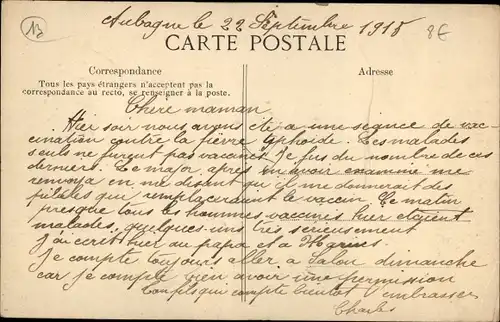 13
Aubagne le 22 Septembre 1915
8€
CARTE POSTALE
Correspondance
Tous les pays étrangers n'acceptent pas la
correspondance au recto, se renseigner à la poste.
Adresse
Chere maman
Hier soir nous avons été a une seance de vac-
cination contre la fievre typhoide. Les malades
seuls ne furent pas vaccinés. Je fus du nombre de ces
derniers. Le major après m'avoir examiné me
renvoya en me disant qu'il me donnerait des
pilules qui remplaceraient le vaccin. Ce matin
presque tous les hommes vaccines hier etaient
malades, quelques-uns tres serieusement
J'ai ecrit hier au papa et a
Je compte toujours aller a Salon dimanche
car je compte bien avoir une permission
Ton fils qui compte bientot t'embrasser
Charles